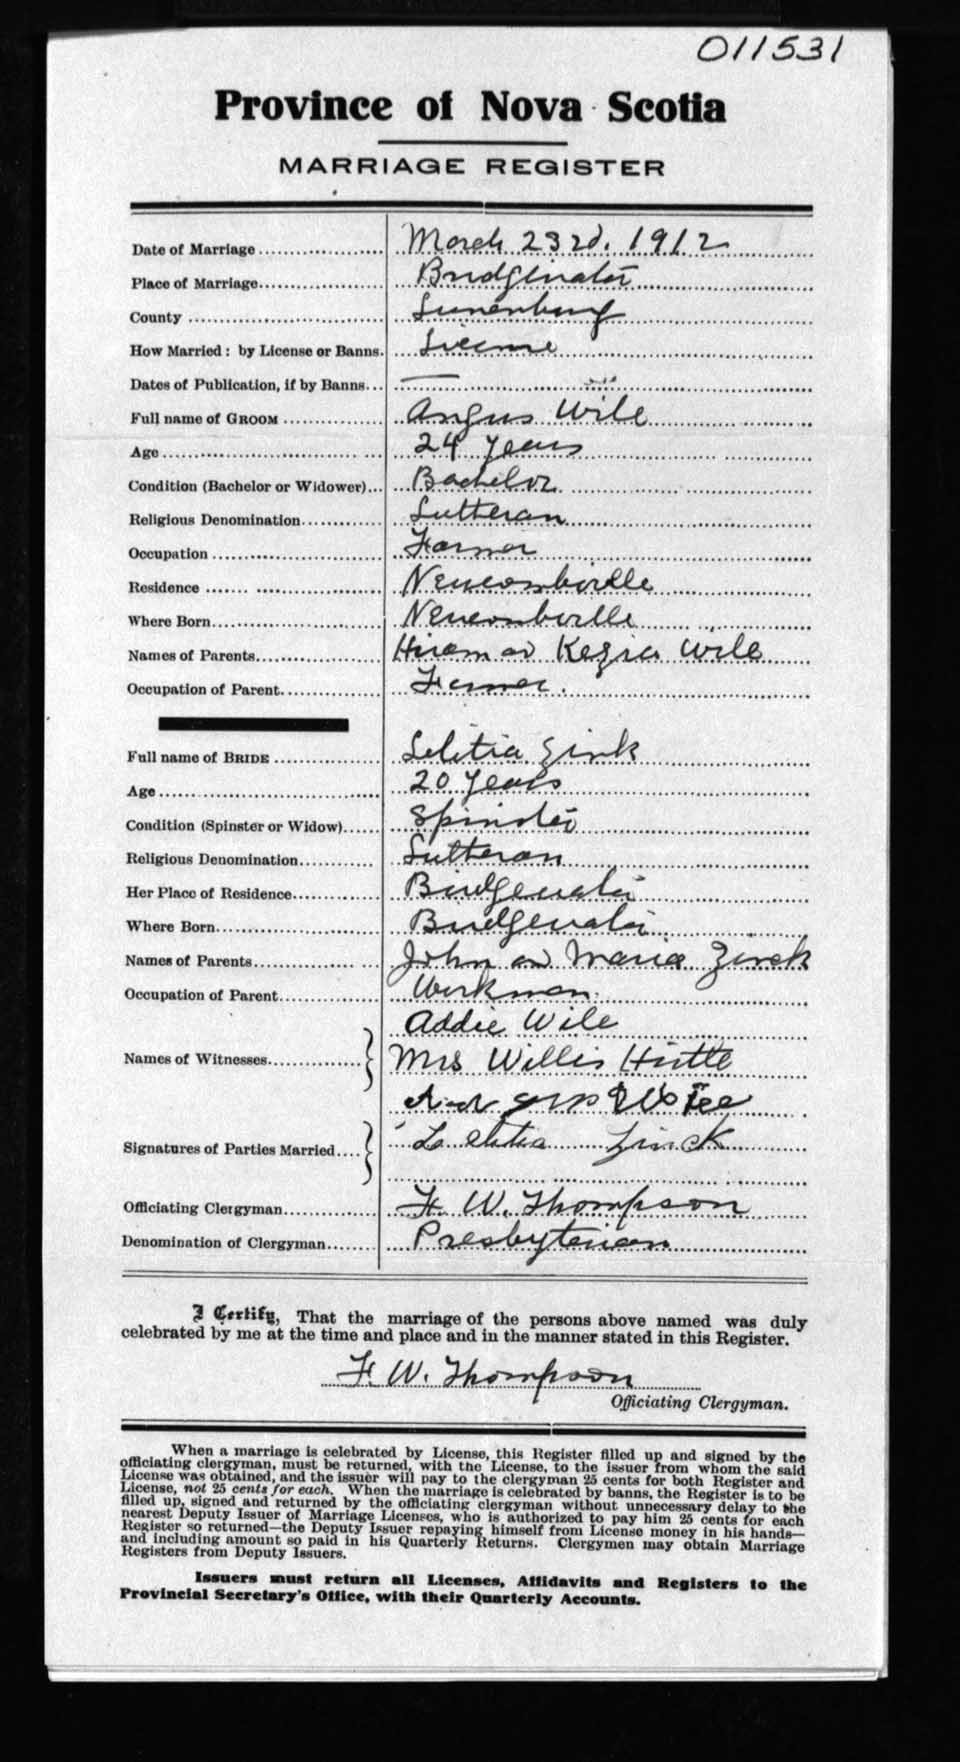 011531
Province of Nova Scotia
MARRIAGE REGISTER
Date of Marriage March 23rd. 1912
Place of Marriage Bridgewater
County Lunenburg
How Married: by License or Banns. License
Dates of Publication, if by Banns —
Full name of GROOM Angus Wile
Age 24 years
Condition (Bachelor or Widower) Bachelor
Religious Denomination Lutheran
Occupation Farmer
Residence Newcombville
Where Born Newcombville
Names of Parents Hiram and Kezia Wile
Occupation of Parent Farmer.
Full name of BRIDE Letitia Zink
Age 20 years
Condition (Spinster or Widow) Spinster
Religious Denomination Lutheran
Her Place of Residence Bridgewater
Where Born Bridgewater
Names of Parents John and Maria Zinck
Occupation of Parent Workman.
Addie Wile
Names of Witnesses Mrs Willis Hirtle
Angus Wile
Signatures of Parties Married Letitia Zinck
Officiating Clergyman F. W. Thompson
Denomination of Clergyman Presbyterian
I Certify, That the marriage of the persons above named was duly
celebrated by me at the time and place and in the manner stated in this Register.
F. W. Thompson
Officiating Clergyman.
When a marriage is celebrated by License, this Register filled up and signed by the
officiating clergyman, must be returned, with the License, to the issuer from whom the said
License was obtained, and the issuer will pay to the clergyman 25 cents for both Register and
License, not 25 cents for each. When the marriage is celebrated by banns, the Register is to be
filled up, signed and returned by the officiating clergyman without unnecessary delay to the
nearest Deputy Issuer of Marriage Licenses, who is authorized to pay him 25 cents for each
Register so returned—the Deputy Issuer repaying himself from License money in his hands—
and including amount so paid in his Quarterly Returns. Clergymen may obtain Marriage
Registers from Deputy Issuers.
Issuers must return all Licenses, Affidavits and Registers to the
Provincial Secretary's Office, with their Quarterly Accounts.